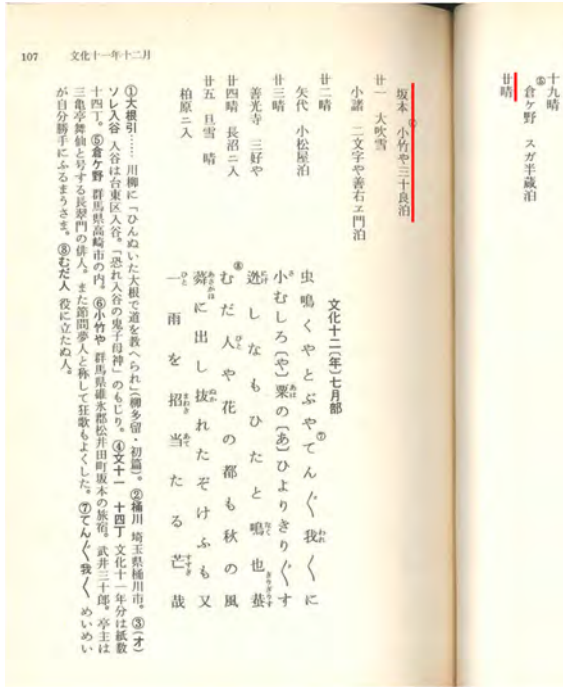 十九晴
⑤倉ケ野 スガ半蔵泊
廿晴
坂本 ⑥小竹や三十良泊
廿一 大吹雪
小諸 二文字や善右ヱ門泊
廿二晴
矢代 小松屋泊
廿三晴
善光寺 三好や
廿四晴 長沼ニ入
廿五 旦雪 晴
柏原ニ入
文化十二〔年〕七月部
虫鳴くやとぶやてん〲我〱に
小むしろ〔や〕粟の〔あ〕ひよりきり〲す
迯しなもひたと鳴也蛬
むだ人や花の都も秋の風
蕣に出し抜れたぞけふも又
一雨を招当たる芒哉
107 文化十一年十二月
①大根引…… 川柳に「ひんぬいた大根で道を教へられ」(柳多留・初篇)。②桶川 埼玉県桶川市。③(オ)
ソレ入谷 入谷は台東区入谷。「恐れ入谷の鬼子母神」のもじり。④文十一 十四丁 文化十一年分は紙数
十四丁。⑤倉ケ野 群馬県高崎市の内。⑥小竹や 群馬県碓氷郡松井田町坂本の旅宿。武井三十郎。亭主は
三亀亭舞仙と号する長翠門の俳人。また節間夢人と称して狂歌もよくした。⑦てん〲我〱 めいめい
が自分勝手にふるまうさま。⑧むだ人 役に立たぬ人。